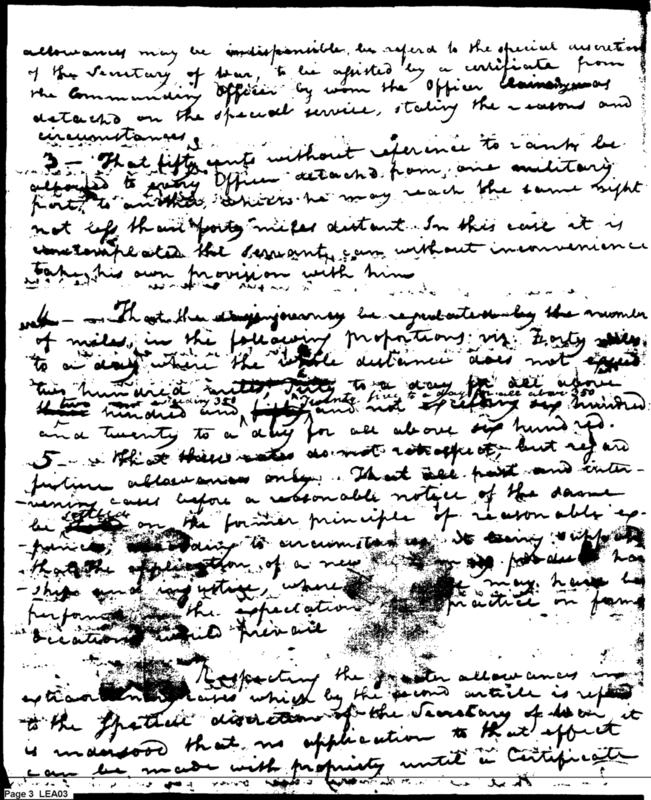 allowances may be indispensible, be referd to the special discretion
of the Secretary of War, to be assisted by a certificate from
the Commanding Officer by whom the Officer was
detachd on the special service, stating the reasons and
circumstances
3 — That fifty cents without reference to rank be
allowed to every Officer detachd from one military
post, to another which he may reach the same night
not less than forty miles distant. In this case it is
contemplated that servants can without inconvenience
take his own provision with him
4 — That the days journey be regulated by the number
of miles, in the following proportions viz Forty miles
to a day where the whole distance does not exceed
two hundred to a day for all above
two hundred and not exceeding 350 Twenty five to a day for all above 350
and not exceeding six hundred
and twenty to a day for all above six hundred.
5 — That these rates do not retrospect, but regard
future allowances only. That all past and inter-
-vening cases before a reasonable notice of the same
be settled on the former principle of reasonable ex-
-pences, according to circumstances. It being
that the application of a new hard-
-ships and injustice, where may have been
performed the expectation practice on former
occasions would prevail
Respecting the greater allowances in
extraordinary cases which by the second article is referd
to the Special discretion of the Secretary of War, it
is understood that no application to that effect
can be made with propriety until a Certificate
Page 3 LEA03